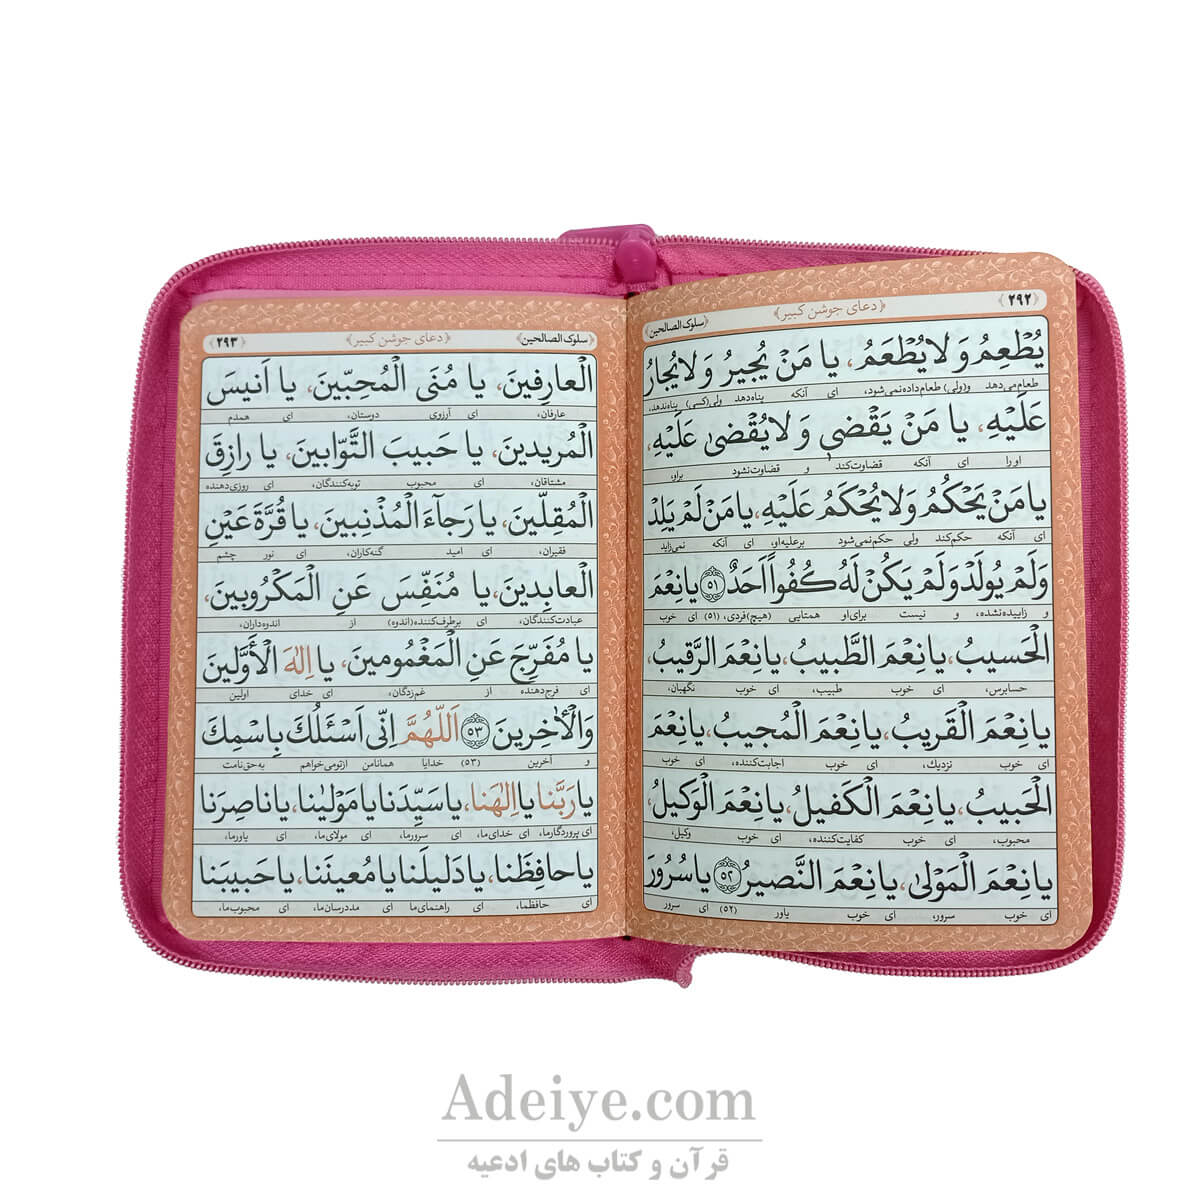 ﴿۲۹۲﴾ ﴿دعای جوشن کبیر﴾ ﴿سلوک الصالحین﴾
یُطْعِمُ وَ لا یُطْعَمُ، یا مَنْ یُجیرُ وَ لا یُجارُ
طعام‌می‌دهد و(ولی) طعام‌داده‌نمی‌شود، ای آنکه پناه‌دهد ولی(کسی) پناه‌ندهد،
عَلَیْهِ، یا مَنْ یَقْضی وَ لا یُقْضیٰ عَلَیْهِ،
او را ای آنکه قضاوت‌کند و قضاوت‌نشود براو،
یا مَنْ یَحْکُمُ وَ لا یُحْکَمُ عَلَیْهِ، یا مَنْ لَمْ یَلِدْ
ای آنکه حکم‌کند ولی حکم‌نمی‌شود برعلیه‌او، ای آنکه نمی‌زاید
وَ لَمْ یُولَدْ وَ لَمْ یَکُنْ لَهُ کُفُواً اَحَدٌ ﴿۵۱﴾ یا نِعْمَ
و زاییده‌نشده، و نیست برای‌او همتایی (هیچ)فردی، (۵۱) ای خوب
الْحَسیبُ، یا نِعْمَ الطَّبیبُ، یا نِعْمَ الرَّقیبُ،
حسابرس، ای خوب طبیب، ای خوب نگهبان،
یا نِعْمَ الْقَریبُ، یا نِعْمَ الْمُجیبُ، یا نِعْمَ
ای خوب نزدیك، ای خوب اجابت‌کننده، ای خوب
الْحَبیبُ، یا نِعْمَ الْکَفیلُ، یا نِعْمَ الْوَکیلُ،
محبوب، ای خوب کفایت‌کننده، ای خوب وکیل،
یا نِعْمَ الْمَوْلیٰ، یا نِعْمَ النَّصیرُ ﴿۵۲﴾ یا سُرُورَ
ای خوب سرور، ای خوب یاور (۵۲) ای سرور
﴿سلوک الصالحین﴾ ﴿دعای جوشن کبیر﴾ ﴿۲۹۳﴾
الْعارِفینَ، یا مُنَی الْمُحِبّینَ، یا اَنیسَ
عارفان، ای آرزوی دوستان، ای همدم
الْمُریدینَ، یا حَبیبَ التَّوّابینَ، یا رازِقَ
مشتاقان، ای محبوب توبه‌کنندگان، ای روزی‌دهنده
الْمُقِلّینَ، یا رَجآءَ الْمُذْنِبینَ، یا قُرَّةَ عَیْنِ
فقیران، ای امید گنه‌کاران، ای نور چشم
الْعابِدینَ، یا مُنَفِّسَ عَنِ الْمَکْرُوبینَ،
عبادت‌کنندگان، ای برطرف‌کننده(اندوه) از اندوه‌داران،
یا مُفَرِّجَ عَنِ الْمَغْمُومینَ، یا اِلٰهَ الْأَوَّلینَ
ای فرج‌دهنده از غم‌زدگان، ای خدای اولین
وَ الْأٰخِرینَ ﴿۵۳﴾ اَللّٰهُمَّ اِنّی اَسْئَلُكَ بِاسْمِكَ
و آخرین (۵۳) خدایا همانامن ازتومی‌خواهم به‌حق‌نامت
یا رَبَّنا یا اِلٰهَنا، یا سَیِّدَنا یا مَوْلیٰنا، یا ناصِرَنا
ای پروردگارما، ای خدای‌ما، ای سرورما، ای مولای‌ما، ای یاورما،
یا حافِظَنا، یا دَلیلَنا یا مُعینَنا، یا حَبیبَنا
ای حافظما، ای راهنمای‌ما ای مددرسان‌ما، ای محبوب‌ما،
Adeiye.com
قرآن و کتاب های ادعیه